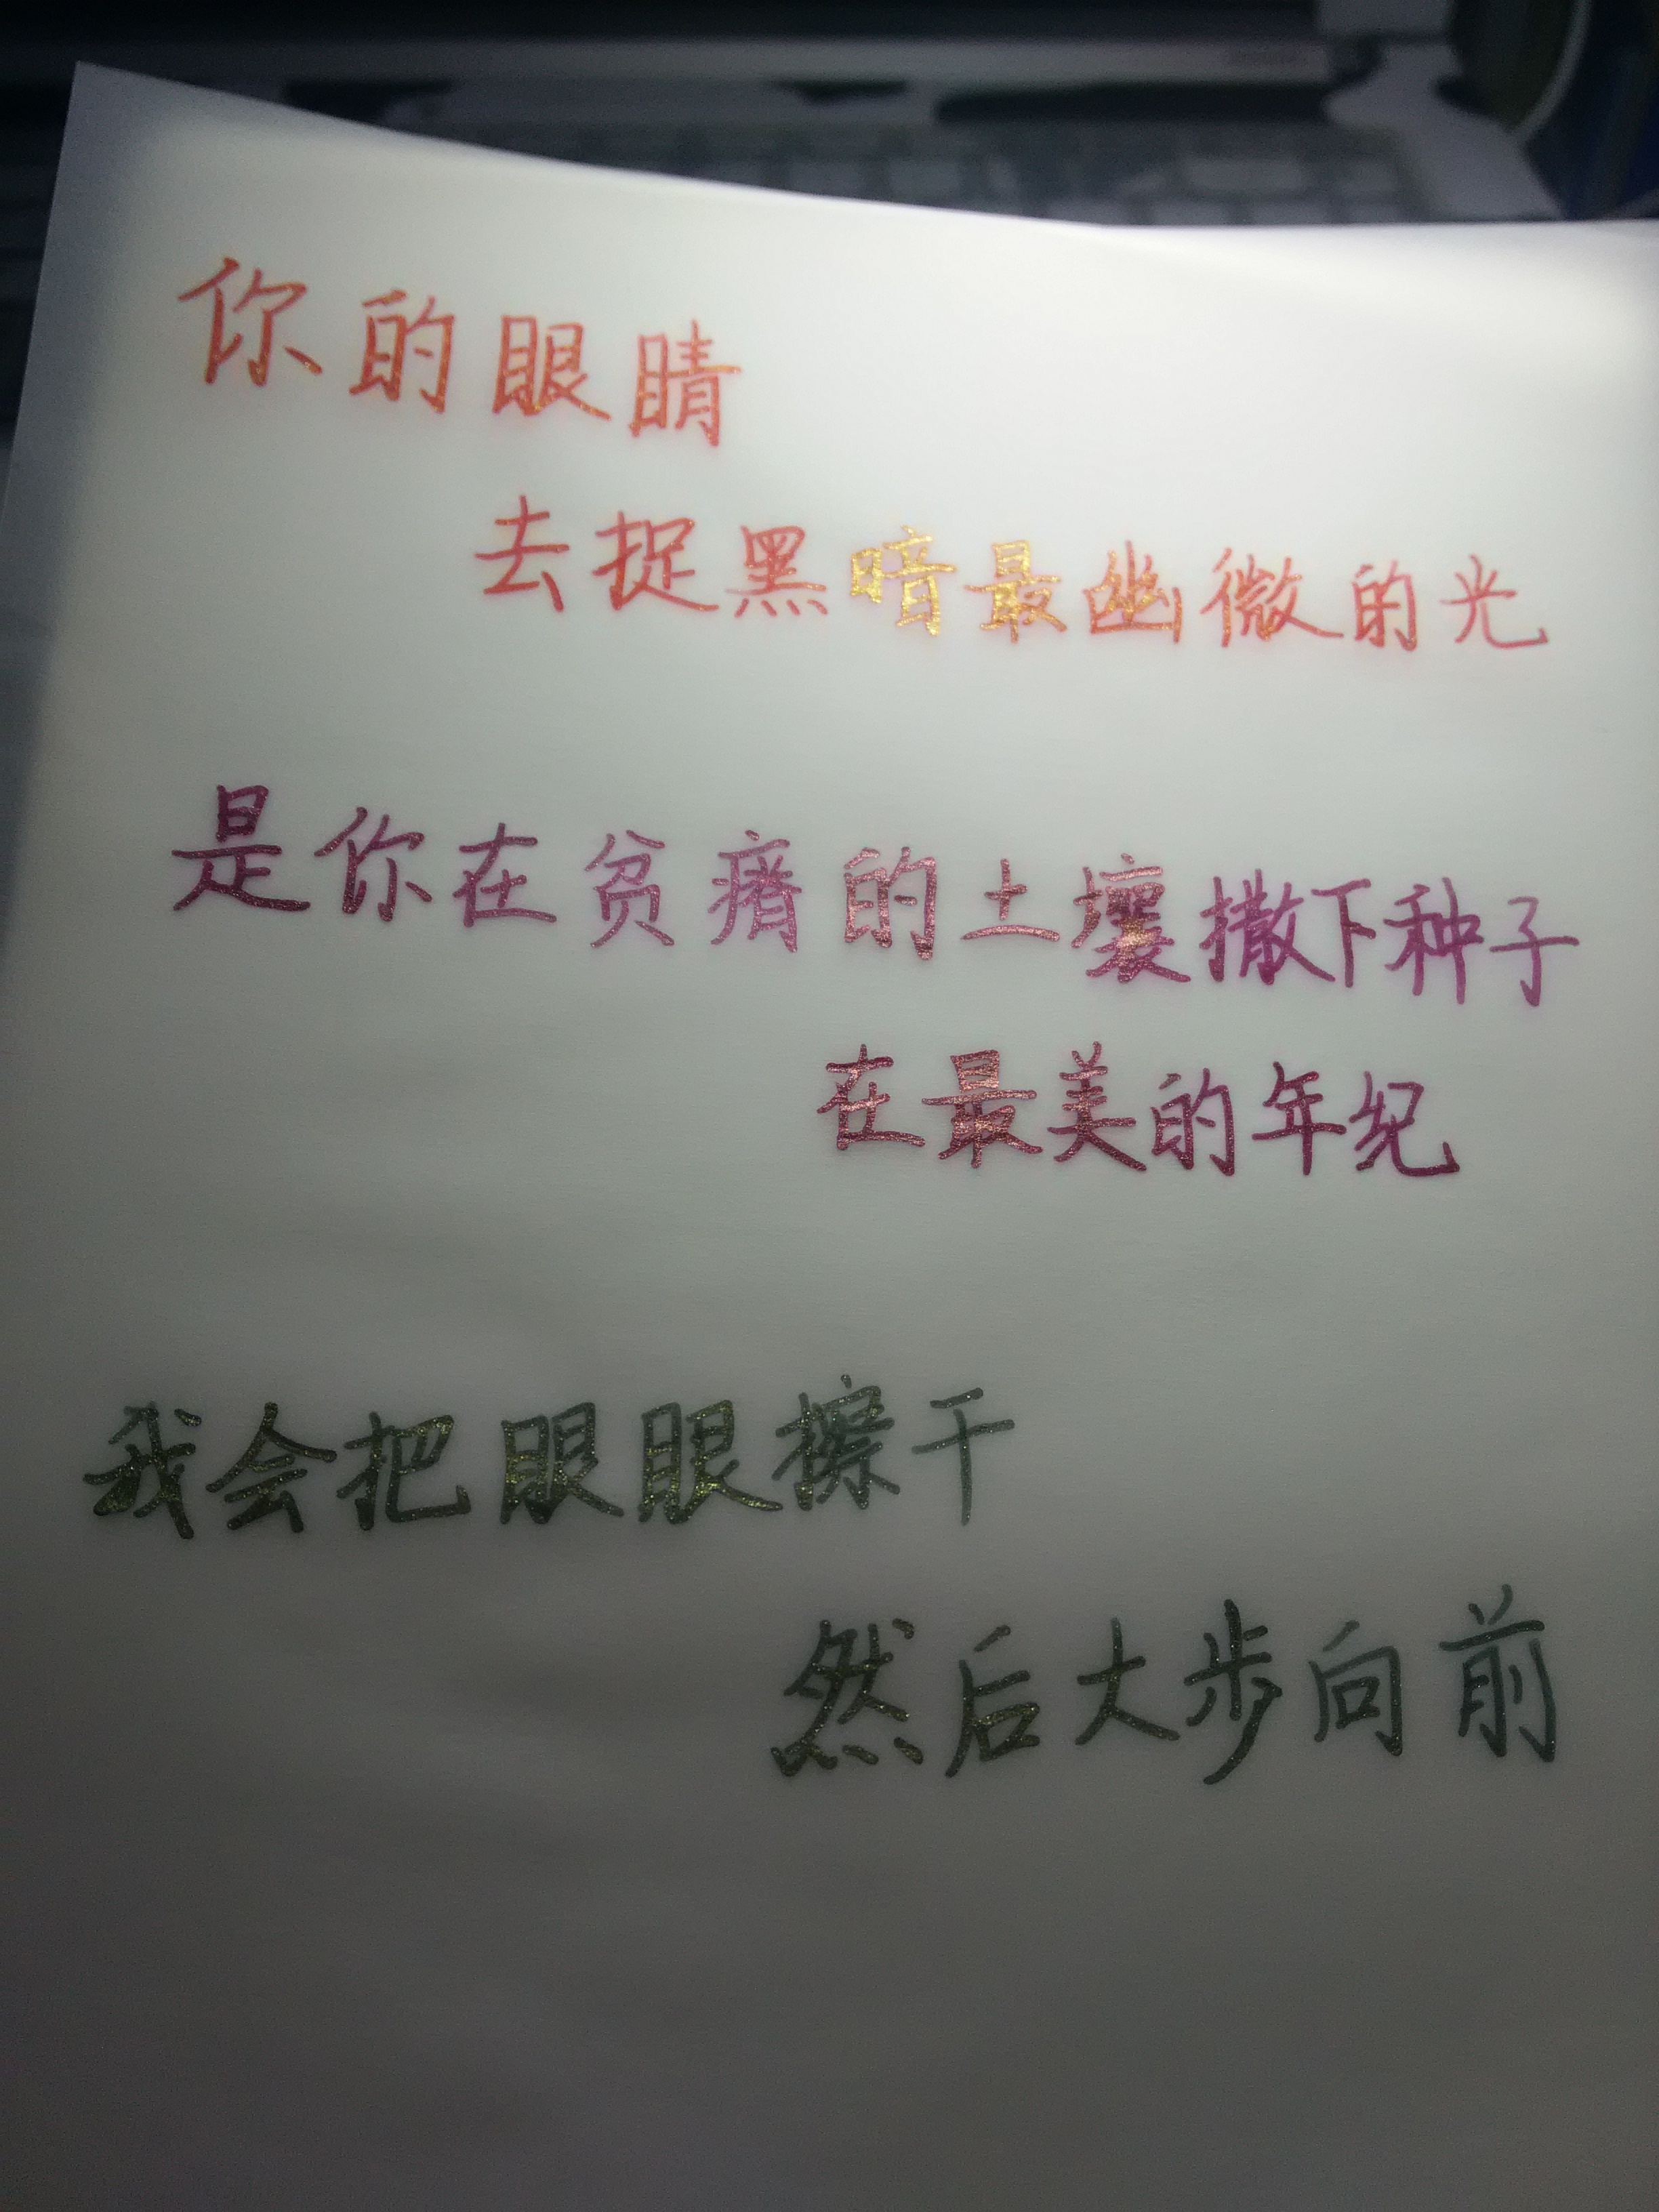 你的眼睛
去捉黑暗最幽微的光
是你在贫瘠的土壤撒下种子
在最美的年纪
我会把眼眼擦干
然后大步向前